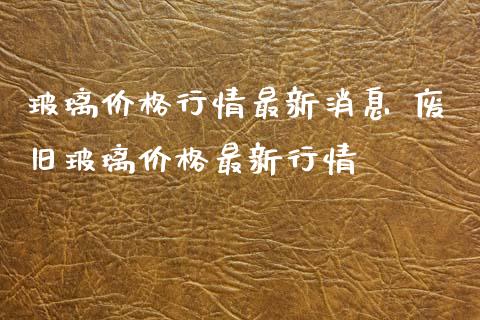 玻璃价格行情最新消息 废
旧玻璃价格最新行情